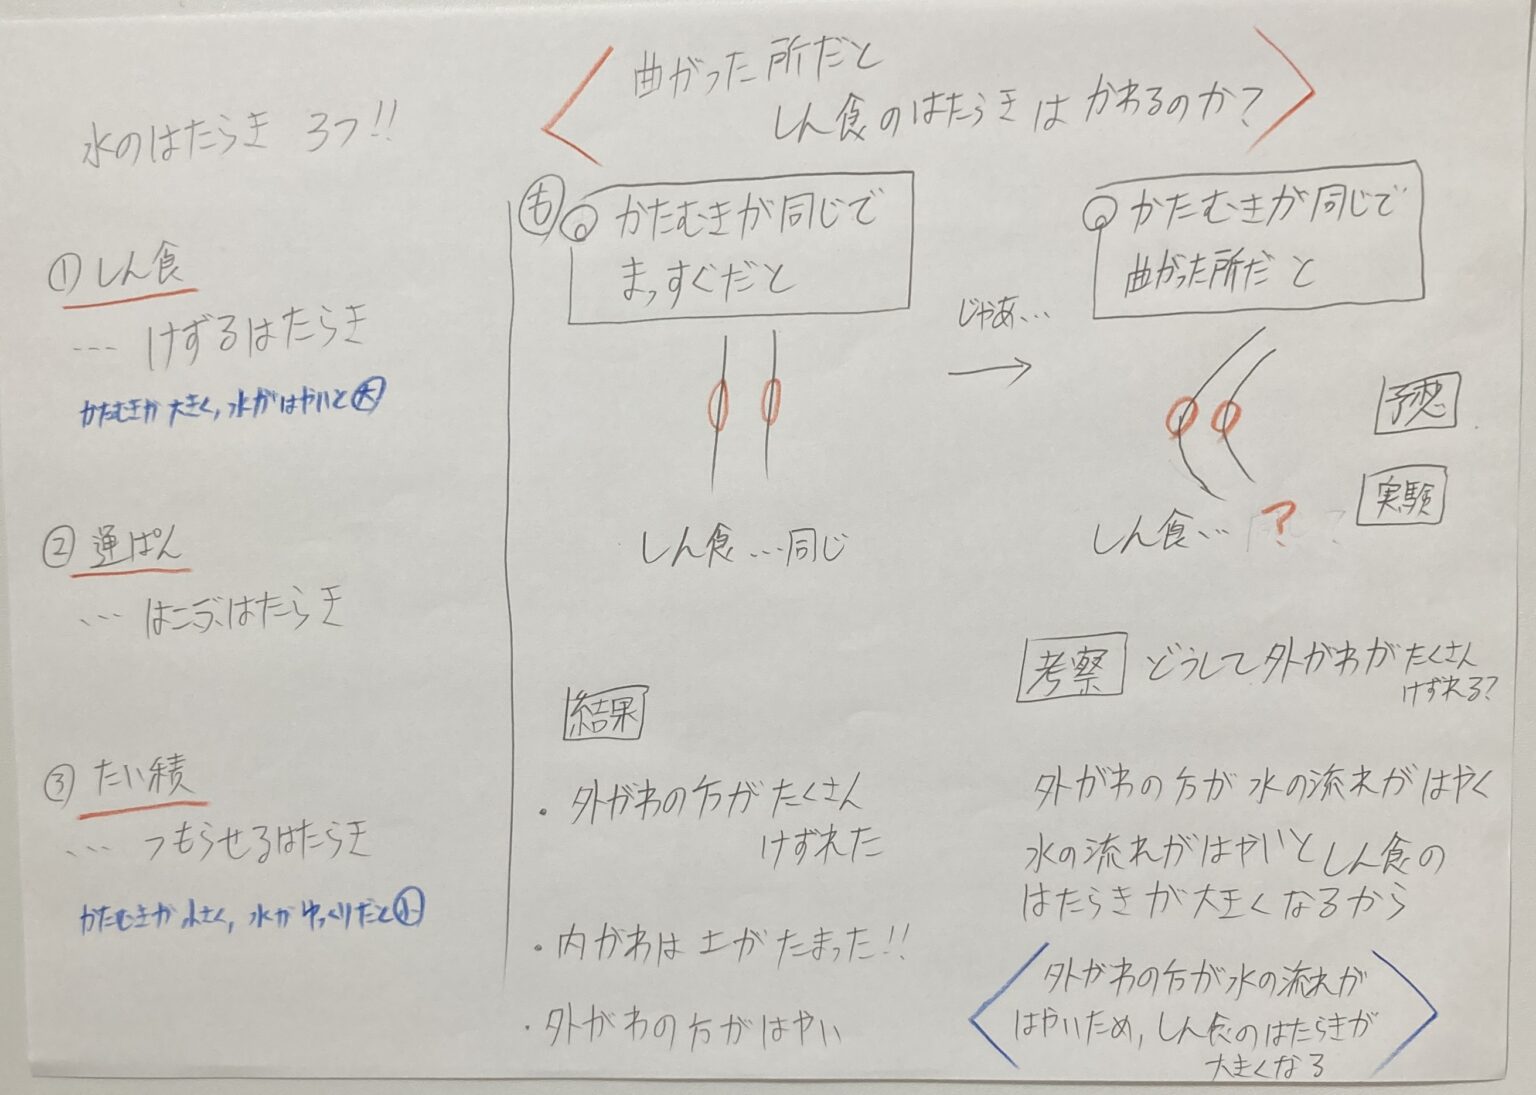 水のはたらき 3つ!!
① しん食
… けずるはたらき
かたむきが大きく,水がはやいと大
② 運ぱん
… はこぶはたらき
③ たい積
… つもらせるはたらき
かたむきが小さく,水がゆっくりだと小
曲がった所だと
しん食のはたらきはかわるのか?
も
かたむきが同じで
まっすぐだと
しん食…同じ
じゃあ…
→
かたむきが同じで
曲がった所だと
しん食… ?
予想
実験
結果
・外がわの方がたくさん
けずれた
・内がわは土がたまった!!
・外がわの方がはやい
考察 どうして外がわがたくさん
けずれる?
外がわの方が水の流れがはやく
水の流れがはやいとしん食の
はたらきが大きくなるから
外がわの方が水の流れが
はやいため,しん食のはたらきが
大きくなる